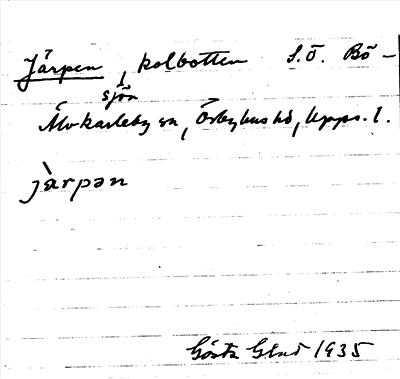 Järpen, kolbotten S.Ö. Bö-
sjön
Älvkarleby sn, Örbyhus hd, Upps. l.
jàrpən
Gösta Glad 1935